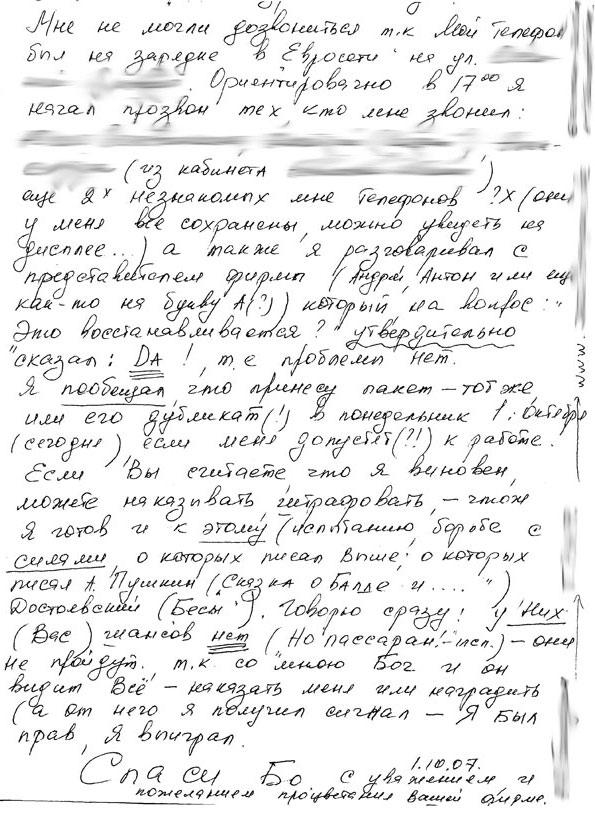 Мне не могли дозвониться т.к. мой телефон
был на зарядке в Евросети на ул.
. Ориентировочно в 17⁰⁰ я
начал прозвон тех, кто мне звонил:
(из кабинета )
еще 2х незнакомых мне телефонов ?х (они
у меня все сохранены, можно увидеть на
дисплее...) а также я разговаривал с
представителем фирмы (Андрей, Антон или ещ
как-то на букву А(?)) который на вопрос: "
Это восстанавливается?" утвердительно
"сказал: DA !, т.е проблемы нет.
Я пообещал, что принесу пакет – тот же
или его дубликат(!) в понедельник 1. Октября
(сегодня) если меня допустят(?!) к работе.
Если Вы считаете что я виновен,
можете наказывать, штрафовать, – чтож
Я готов и к этому (испытанию, борьбе с
силами, о которых писал выше; о которых
писал А. Пушкин (Сказка о Балде и .... ")
Достоевский (Бесы"). Говорю сразу: у Них
(Вас) шансов нет (Но пассаран! - исп.) – они
не пройдут, т.к. со мною Бог и он
видит Всё – наказать меня или наградить
(а от него я получил сигнал – Я был
прав, Я выиграл.
1.10.07.
Спаси Бо с уважением и
пожеланием процветания вашей фирме.
www.